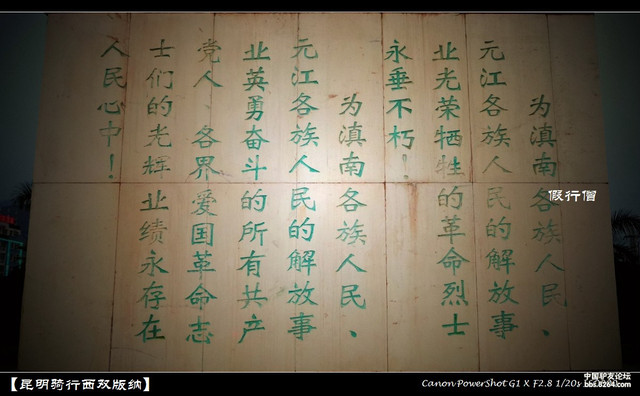 为滇南各族人民、
元江各族人民的解放事
业光荣牺牲的革命烈士
永垂不朽！
为滇南各族人民、
元江各族人民的解放事
业英勇奋斗的所有共产
党人、各界爱国革命志
士们的光辉业绩永存在
人民心中！
假行僧
【昆明骑行西双版纳】
Canon PowerShot G1 X F2.8 1/20s
中国驴友论坛
bbs.8264.com